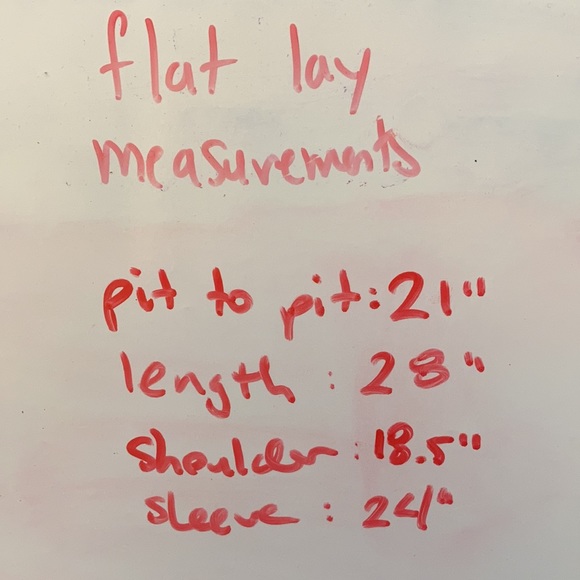 flat lay
measurements
pit to pit: 21"
length: 28"
shoulder: 18.5"
sleeve: 24"